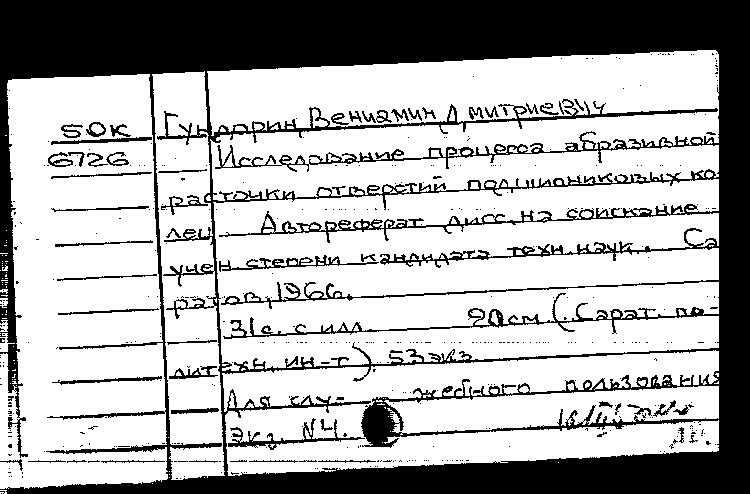 50к Гундорин, Вениамин Дмитриевич
6726 Исследование процесса абразивной
расточки отверстий подшипниковых ко-
лец. Автореферат дисс. на соискание
учен степени кандидата техн. наук. Са-
ратов, 1966.
31с. с илл. 20см (Сарат. по-
литехн. ин-т). 53 экз.
Для слу- жебного пользования
Экз. №4.